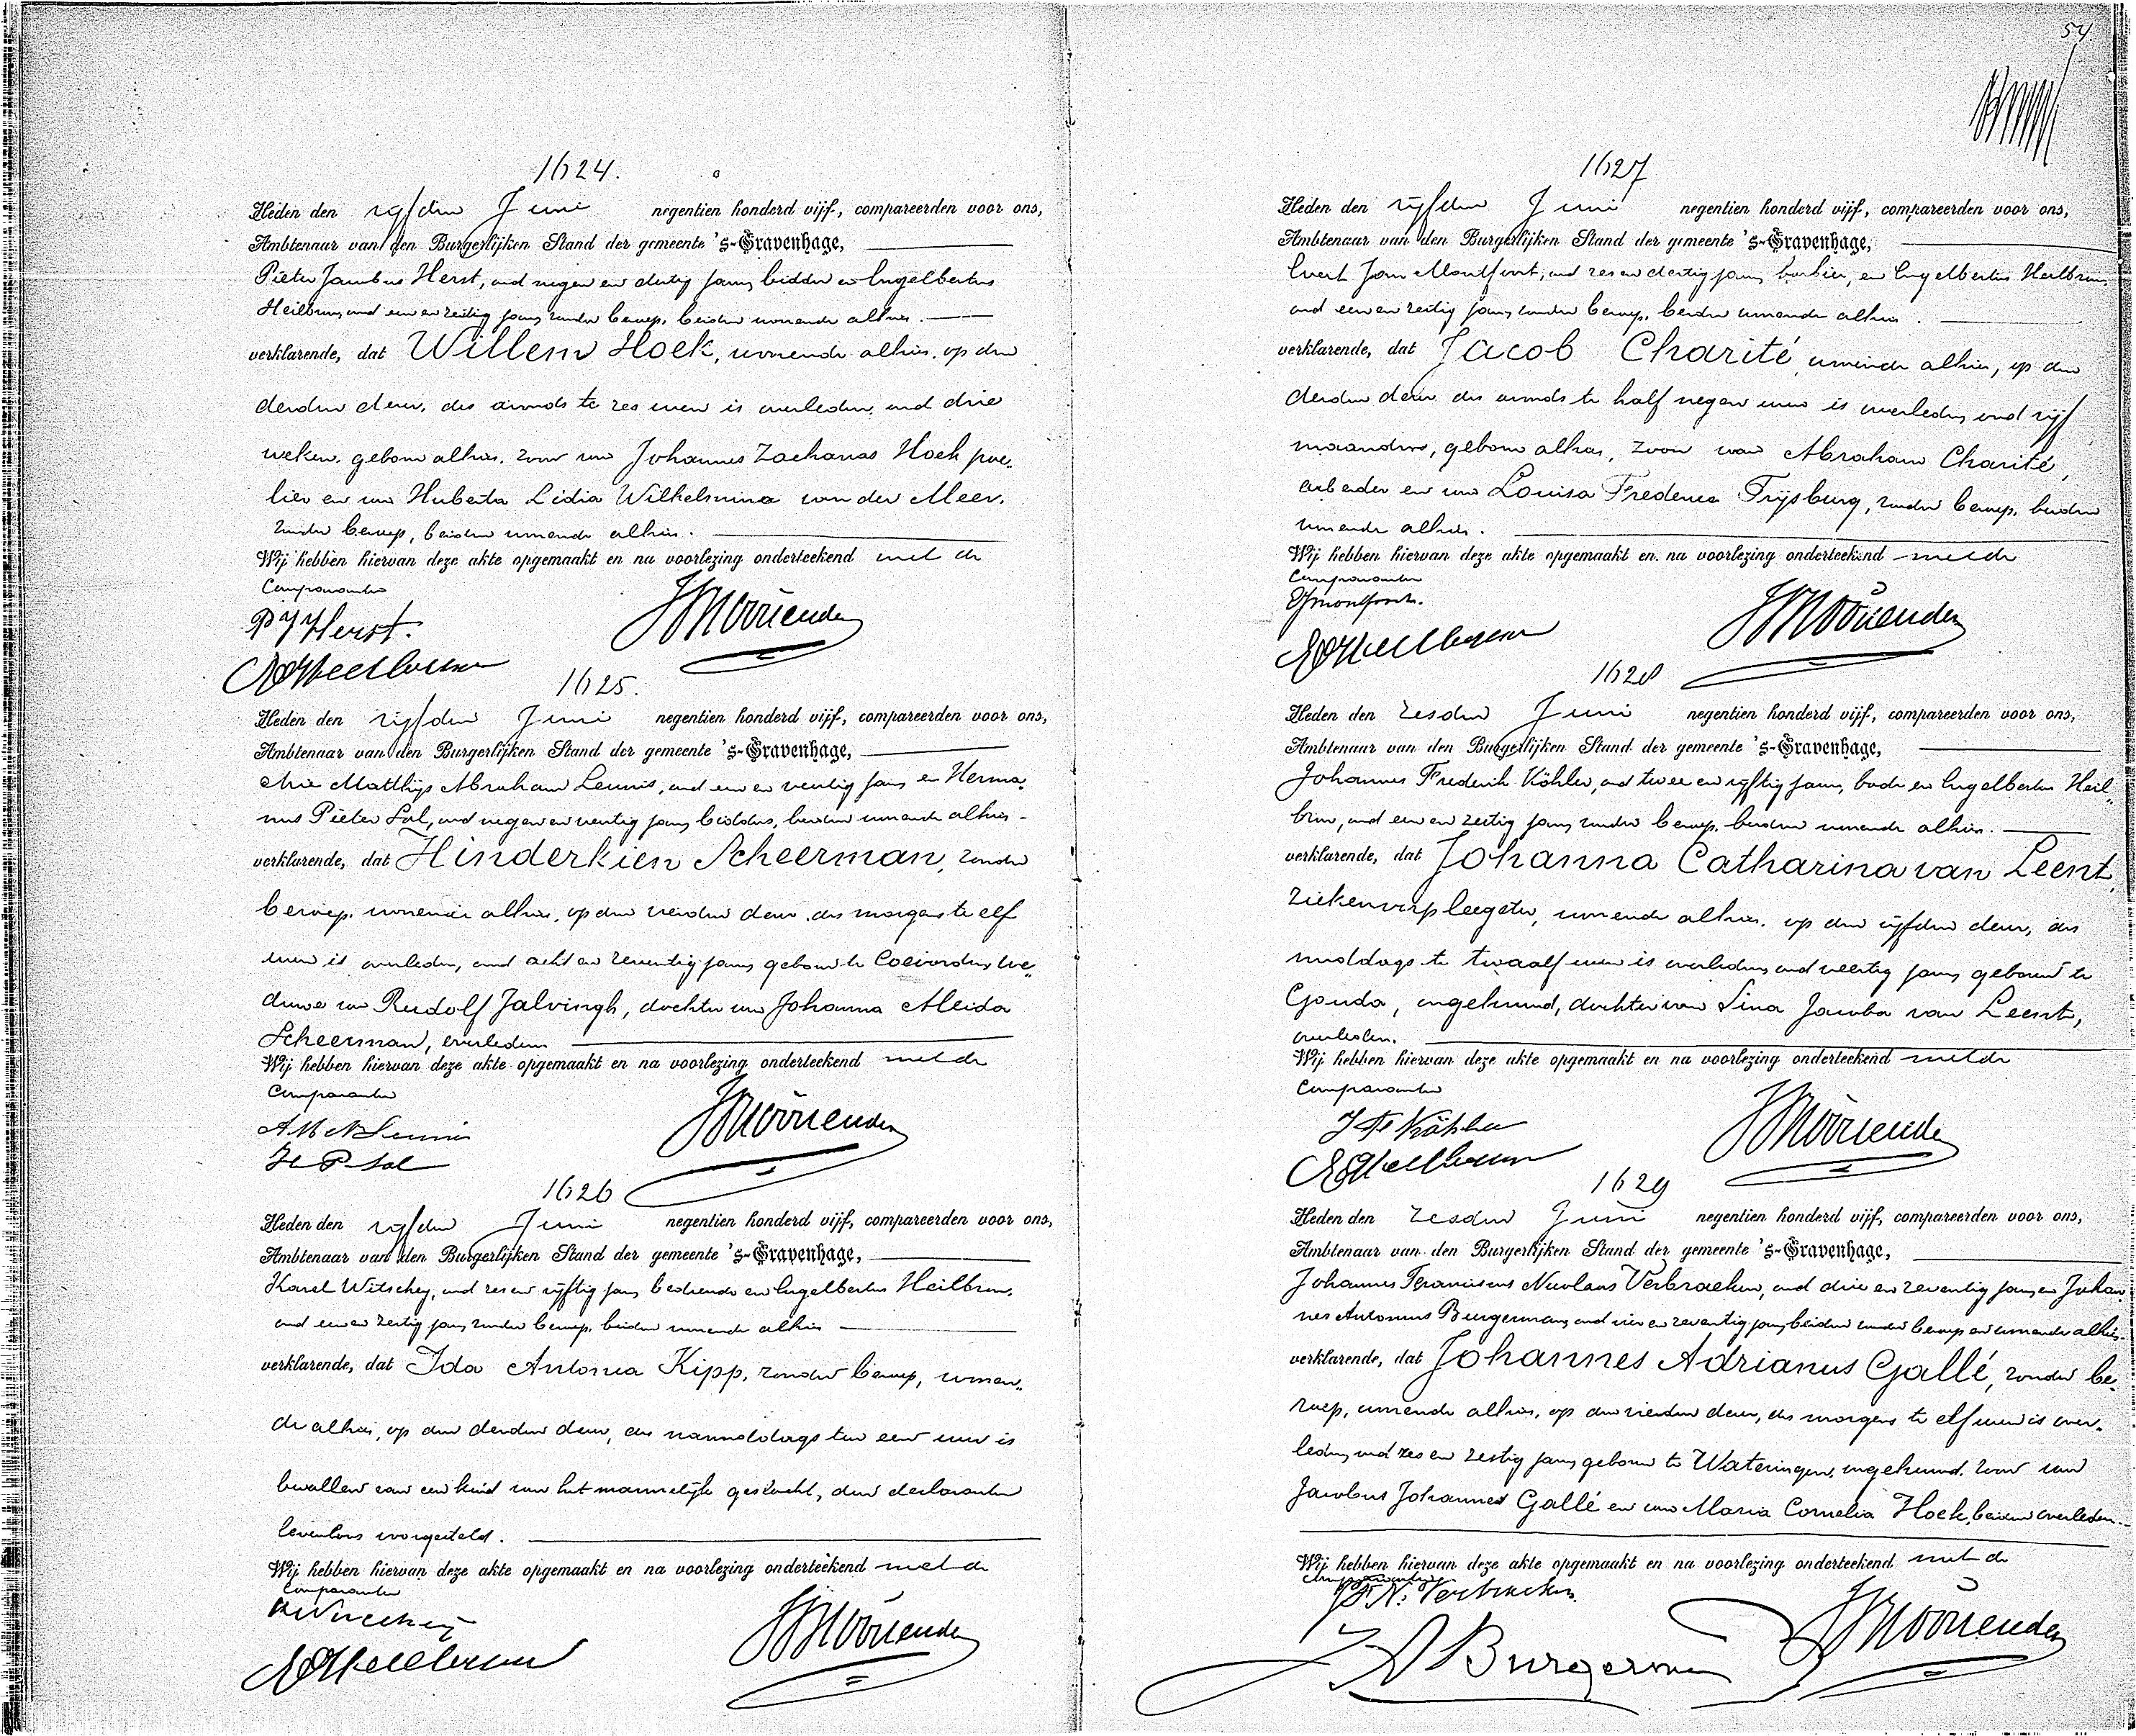 1624.
Heden den vijfden Juni negentien honderd vijf, compareerden voor ons,
Ambtenaar van den Burgerlijken Stand der gemeente 's-Gravenhage,
Pieter Jacobus Herst, oud negen en dertig jaar, bidder en Engelbertus
Heilbron, oud een en zestig jaar, zonder beroep, beiden wonende alhier.
verklarende, dat Willem Hoek, wonende alhier, op den
derden dezer, des avonds te zes uren is overleden, oud drie
weken, geboren alhier, zoon van Johannes Zacharias Hoek poe„
lier en van Huberta Lidia Wilhelmina van der Meer,
zonder beroep, beiden wonende alhier.
Wij hebben hiervan deze akte opgemaakt en na voorlezing onderteekend met de
Comparanten
P J Herst.
1625.
Heden den vijfden Juni negentien honderd vijf, compareerden voor ons,
Ambtenaar van den Burgerlijken Stand der gemeente 's-Gravenhage,
Matthijs Abraham Leunis, oud een en veertig jaar en Herma„
nus Pieter Sol, oud negen en veertig jaar, bidders, beiden wonende alhier
verklarende, dat Hinderkien Scheerman, zonder
beroep, wonende alhier, op den vierden dezer, des morgens te elf
uren is overleden, oud acht en zeventig jaar, geboren te Coevorden, we„
duwe van Rudolf Jalvingh, dochter van Johanna Aleida
Scheerman, overleden
Wij hebben hiervan deze akte opgemaakt en na voorlezing onderteekend met de
Comparanten
H P Sol
1626
Heden den vijfden Juni negentien honderd vijf, compareerden voor ons,
Ambtenaar van den Burgerlijken Stand der gemeente 's-Gravenhage,
Karel Witschey, oud zes en vijftig jaar, bediende en Engelbertus Heilbron,
oud een en zestig jaar, zonder beroep, beiden wonende alhier
verklarende, dat Ida Antonia Kipp, zonder beroep, wonen„
de alhier, op den derden dezer, des namiddags ten een ure is
bevallen van een kind van het mannelijk geslacht, den declaranten
levenloos voorgesteld.
Wij hebben hiervan deze akte opgemaakt en na voorlezing onderteekend met de
Comparanten
54.
1627
Heden den vijfden Juni negentien honderd vijf, compareerden voor ons,
Ambtenaar van den Burgerlijken Stand der gemeente 's-Gravenhage,
Evert Jan Montfoort, oud zes en dertig jaar, barbier, en Engelbertus Heilbron,
oud een en zestig jaar, zonder beroep, beiden wonende alhier.
verklarende, dat Jacob Charité, wonende alhier, op den
derden dezer des avonds te half negen uren is overleden, oud vijf
maanden, geboren alhier, zoon van Abraham Charité,
arbeider en van Louisa Frederica Trijsburg, zonder beroep, beiden
wonende alhier.
Wij hebben hiervan deze akte opgemaakt en na voorlezing onderteekend met de
Comparanten
EJMontfoort.
1628
Heden den zesden Juni negentien honderd vijf, compareerden voor ons,
Ambtenaar van den Burgerlijken Stand der gemeente 's-Gravenhage,
Johannes Frederik Köhler, oud twee en vijftig jaar, bode en Engelbertus Heil„
bron, oud een en zestig jaar, zonder beroep, beiden wonende alhier.
verklarende, dat Johanna Catharina van Leent,
ziekenverpleegster, wonende alhier, op den vijfden dezer, des
middags te twaalf uren is overleden, oud veertig jaar, geboren te
Gouda, ongehuwd, dochter van Lina Jacoba van Leent,
overleden.
Wij hebben hiervan deze akte opgemaakt en na voorlezing onderteekend met de
Comparanten
J F Köhler
1629
Heden den zesden Juni negentien honderd vijf, compareerden voor ons,
Ambtenaar van den Burgerlijken Stand der gemeente 's-Gravenhage,
Johannes Franciscus Nicolaas Verbraeken, oud drie en zeventig jaar en Johan„
nes Antonius Burgerman, oud vier en zeventig jaar, beiden zonder beroep en wonende alhier
verklarende, dat Johannes Adrianus Gallé, zonder be„
roep, wonende alhier, op den vierden dezer, des morgens te elf uren is over„
leden, oud zes en zestig jaar, geboren te Wateringen, ongehuwd, zoon van
Jacobus Johannes Gallé en van Maria Cornelia Hoek, beiden overleden.
Wij hebben hiervan deze akte opgemaakt en na voorlezing onderteekend met de
Comparanten
J.F.N. Verbraeken
J A Burgerman